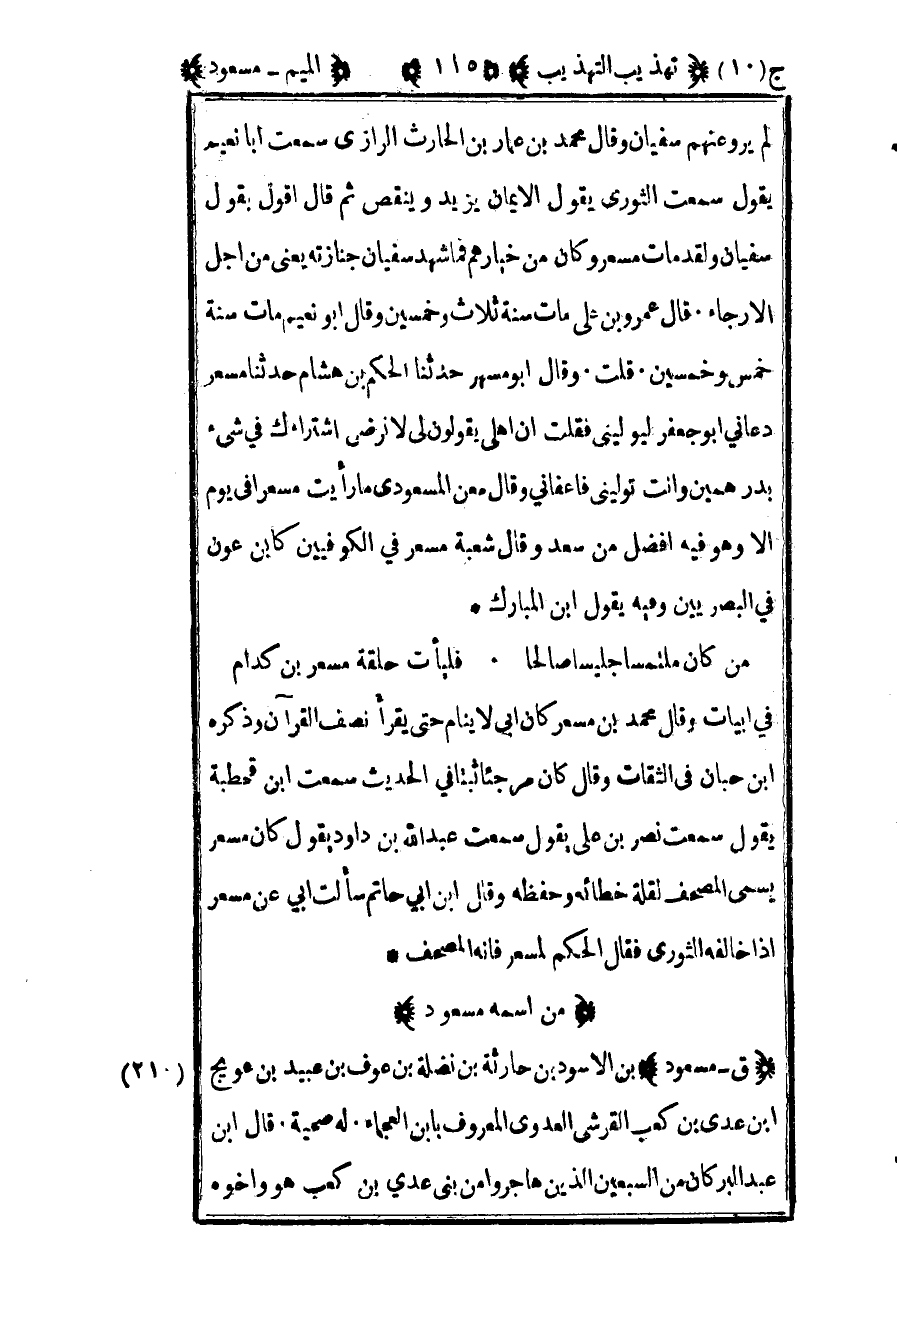 ج(١٠) ﴿ تهذيب التهذيب ﴾ ﴿ ١١٥ ﴾ ﴿ الميم - مسعود ﴾
لم يرو عنهم سفيان وقال محمد بن عمار بن الحارث الرازى سمعت ابا نعيم
يقول سمعت الثورى يقول الايمان يزيد وينقص ثم قال اقول بقول
سفيان ولقد مات مسعر وكان من خيارهم فما شهد سفيان جنازته يعنى من اجل
الارجاء · قال عمرو بن على مات سنة ثلاث وخمسين وقال ابو نعيم مات سنة
خمس وخمسين · قلت · وقال ابو مسهر حدثنا الحكم بن هشام حدثنا مسعر
دعاني ابو جعفر ليولينى فقلت ان اهلى يقولون لى لا نرضى اشتراءك في شىء
بدرهمين وانت تولينى فاعفاني وقال معن المسعودى ما رأيت مسعرا فى يوم
الا وهو فيه افضل من سعد وقال شعبة مسعر في الكوفيين كابن عون
في البصريين وفيه يقول ابن المبارك *
من كان ملتمسا جليسا صالحا · فليأت حلقة مسعر بن كدام
في ابيات وقال محمد بن مسعر كان ابي لا ينام حتى يقرأ نصف القرآن وذكره
ابن حبان فى الثقات وقال كان مرجئا ثبتا في الحديث سمعت ابن قحطبة
يقول سمعت نصر بن على يقول سمعت عبدالله بن داود يقول كان مسعر
يسمى المصحف لقلة خطائه وحفظه وقال ابن ابي حاتم سألت ابي عن مسعر
اذا خالفه الثورى فقال الحكم لمسعر فانه المصحف *
﴿ من اسمه مسعود ﴾
﴿ ق - مسعود ﴾ بن الاسود بن حارثة بن نضلة بن عوف بن عبيد بن عويج (٢١٠)
ابن عدى بن كعب القرشى العدوى المعروف بابن العجماء · له صحبة · قال ابن
عبد البر كان من السبعين الذين هاجروا من بنى عدي بن كعب هو واخوه